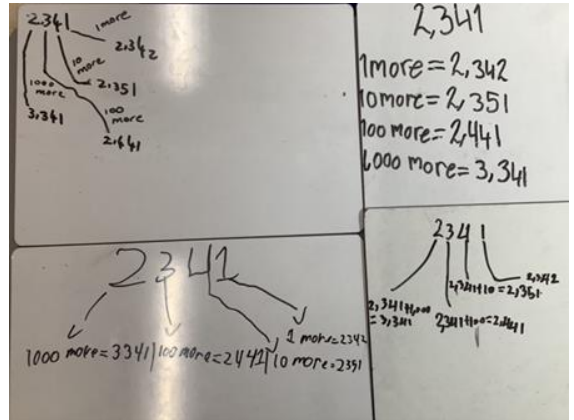 2341
1 more
2,342
10
more
2,351
1000
more
3,341
100
more
2,441
2,341
1more=2,342
10more=2,351
100more=2,441
1000 more=3,341
2341
1 more=2342
1000 more=3341|100 more=2441|10 more=2351
2341
2,342
2,341+10=2,351
2,341+1,000
=3,341
2,341+100=2,441